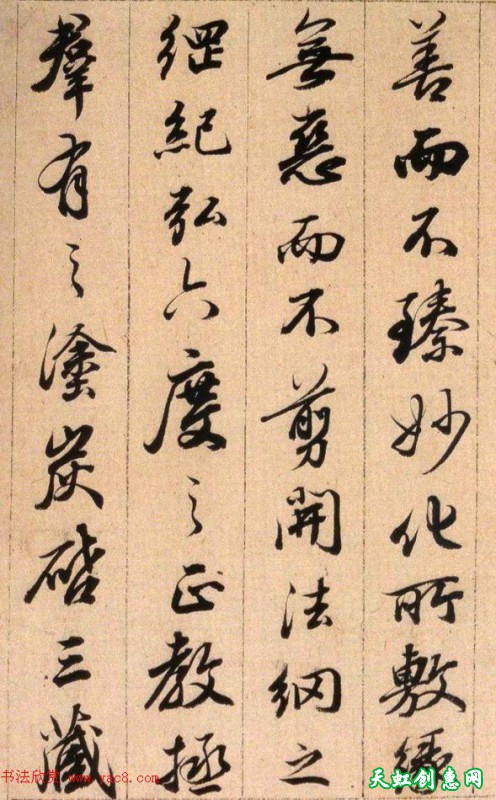 善而不臻妙化所敷緣
無惡而不剪開法網之
綱紀弘六度之正教拯
羣有之塗炭啓三藏
书法欣赏 www.yac8.com
天虹创意网